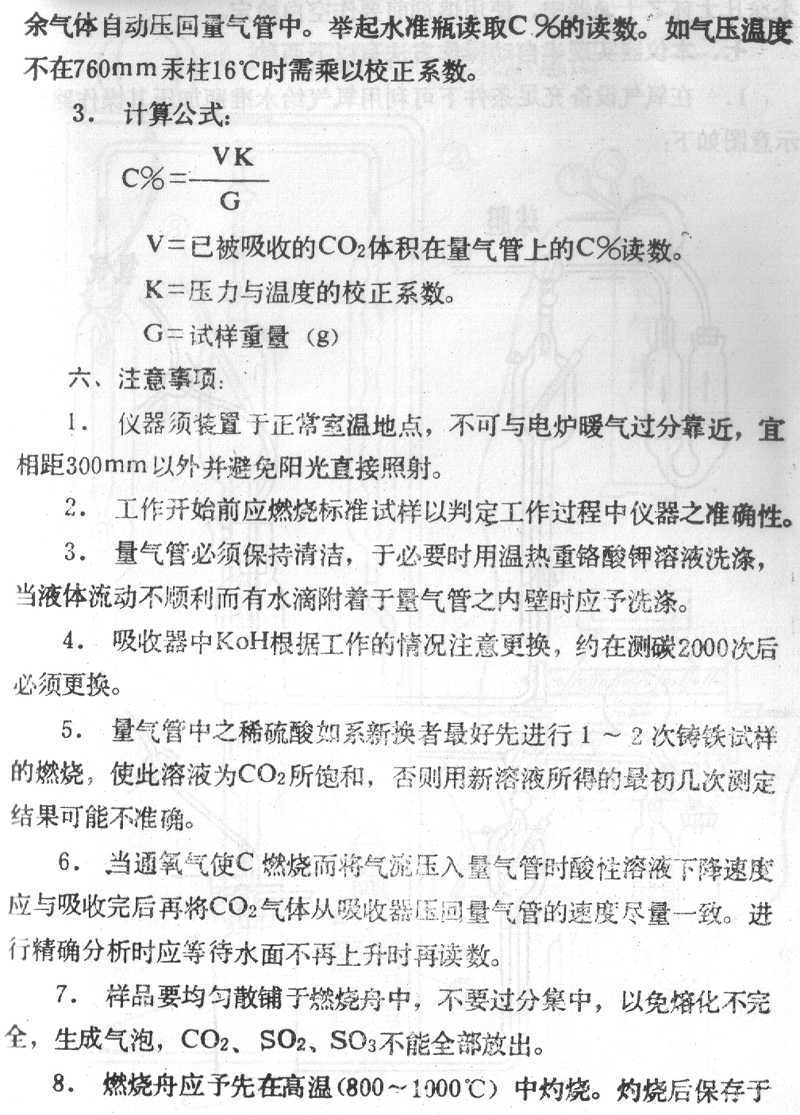 余气体自动压回量气管中。举起水准瓶读取C%的读数。如气压温度
不在760mm汞柱16℃时需乘以校正系数。
3. 计算公式:
C%=VK/G
V=已被吸收的CO₂体积在量气管上的C%读数。
K=压力与温度的校正系数。
G=试样重量（g）
六、注意事项:
1. 仪器须装置于正常室温地点，不可与电炉暖气过分靠近，宜
相距300mm以外并避免阳光直接照射。
2. 工作开始前应燃烧标准试样以判定工作过程中仪器之准确性。
3. 量气管必须保持清洁，于必要时用温热重铬酸钾溶液洗涤，
当液体流动不顺利而有水滴附着于量气管之内壁时应予洗涤。
4. 吸收器中KoH根据工作的情况注意更换，约在测碳2000次后
必须更换。
5. 量气管中之稀硫酸如系新换者最好先进行1～2次铸铁试样
的燃烧，使此溶液为CO₂所饱和，否则用新溶液所得的最初几次测定
结果可能不准确。
6. 当通氧气使C燃烧而将气流压入量气管时酸性溶液下降速度
应与吸收完后再将CO₂气体从吸收器压回量气管的速度尽量一致。进
行精确分析时应等待水面不再上升时再读数。
7. 样品要均匀散铺于燃烧舟中，不要过分集中，以免熔化不完
全，生成气泡，CO₂、SO₂、SO₃不能全部放出。
8. 燃烧舟应予先在高温(800～1000℃）中灼烧。灼烧后保存于